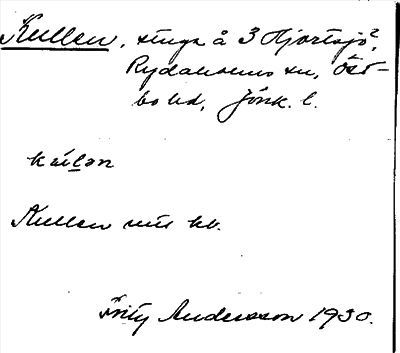 Kullen, stuga å 3 Hjortsjö,
Rydaholms sn, Öst-
bo hd, Jönk. l.
kúlən
Kullen uu kb.
Fritz Andersson 1930.